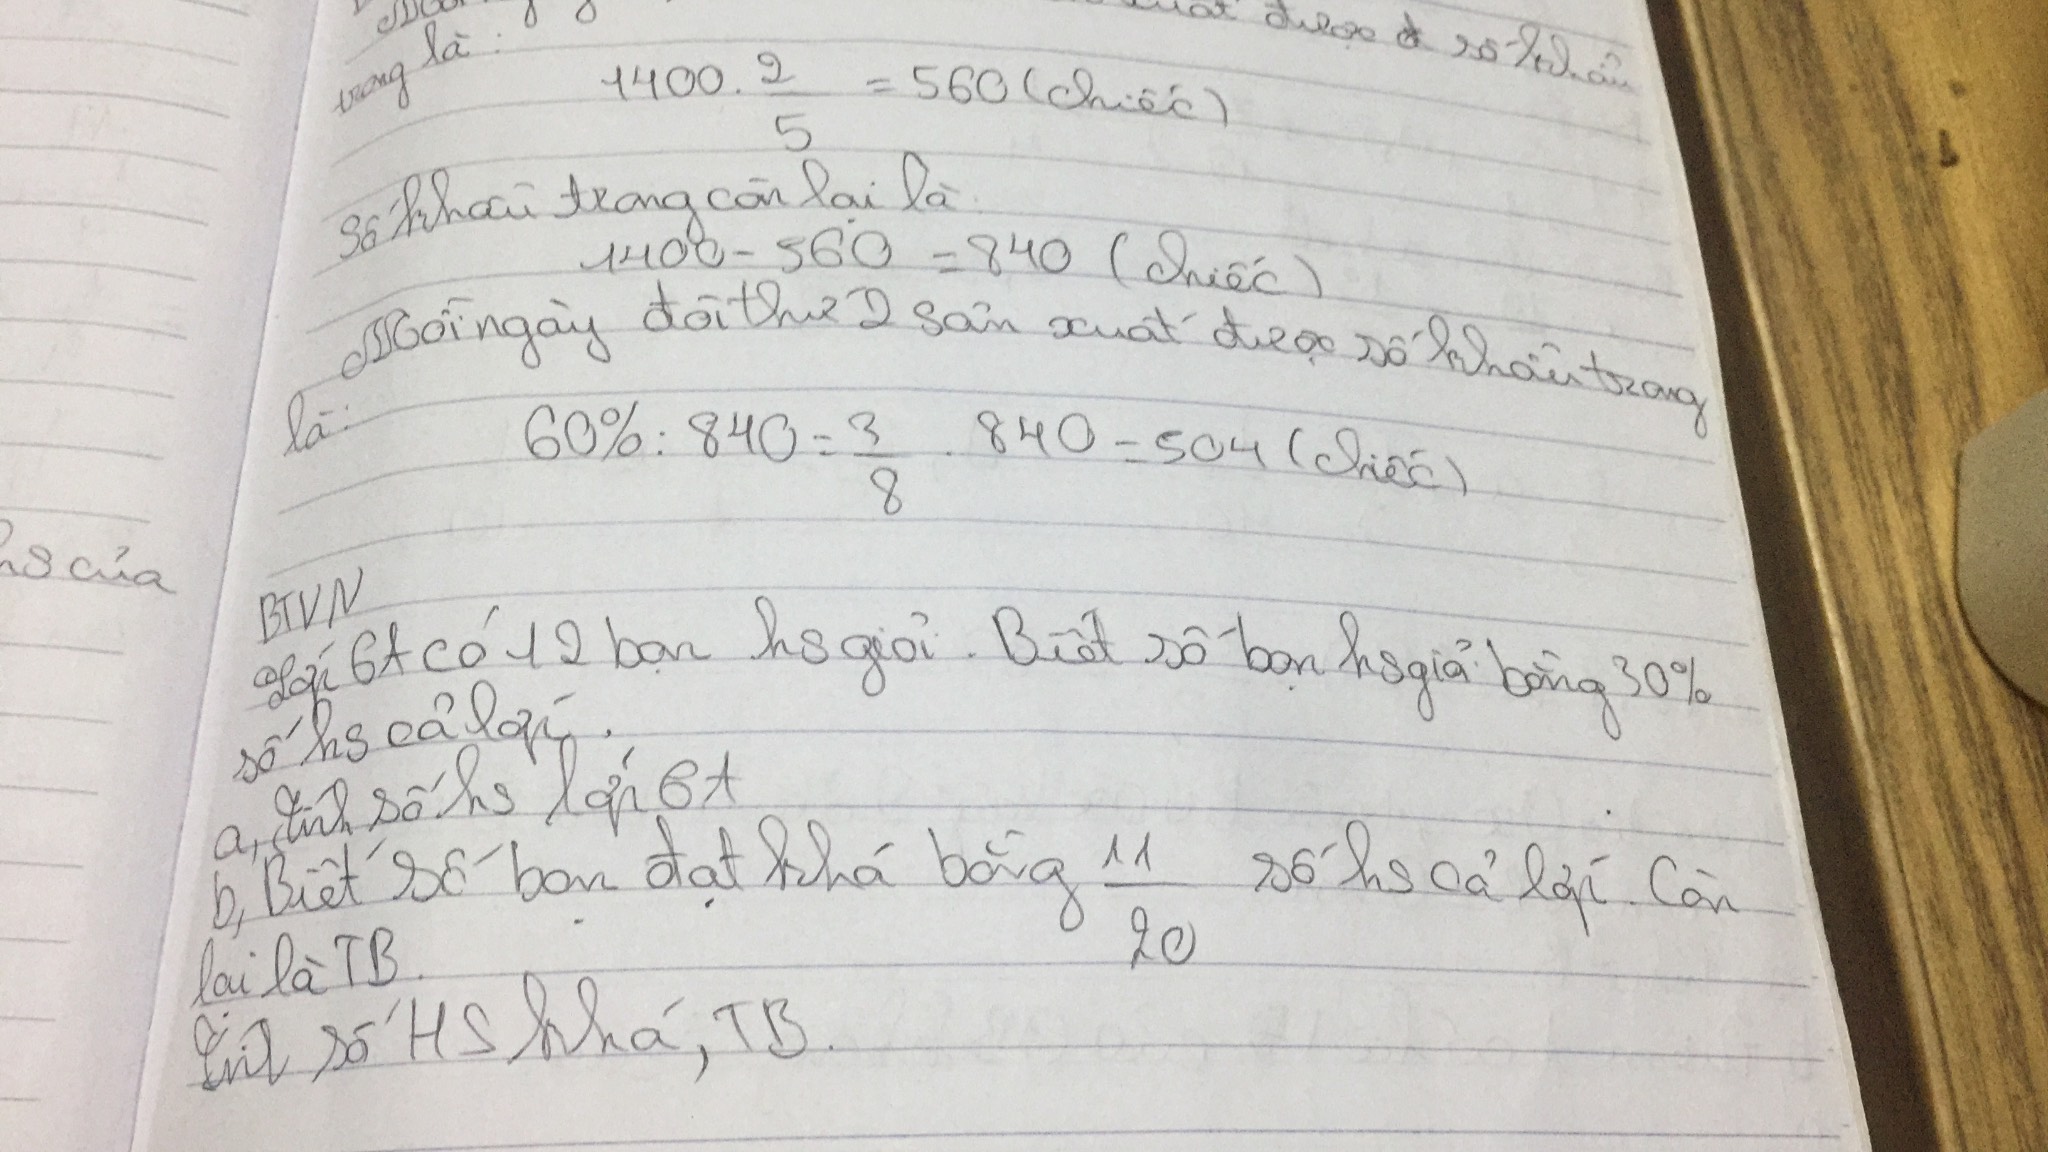 được số khẩu
trong là:
1400 . 2/5 = 560 (chiếc)
Số khẩu trang còn lại là
1400 - 560 = 840 (chiếc)
Mỗi ngày đội thứ 2 sản xuất được số khẩu trang
là:
60% : 840 = 3/8 . 840 = 504 (chiếc)
hs của
BTVN
Lớp 6A có 12 bạn hs giỏi. Biết số bạn hs giỏ bằng 30%
số hs cả lớp.
a, Tính số hs lớp 6A
b, Biết số bạn đạt khá bằng 11/20 số hs cả lớp. Còn
lại là TB.
Tính số HS khá, TB.